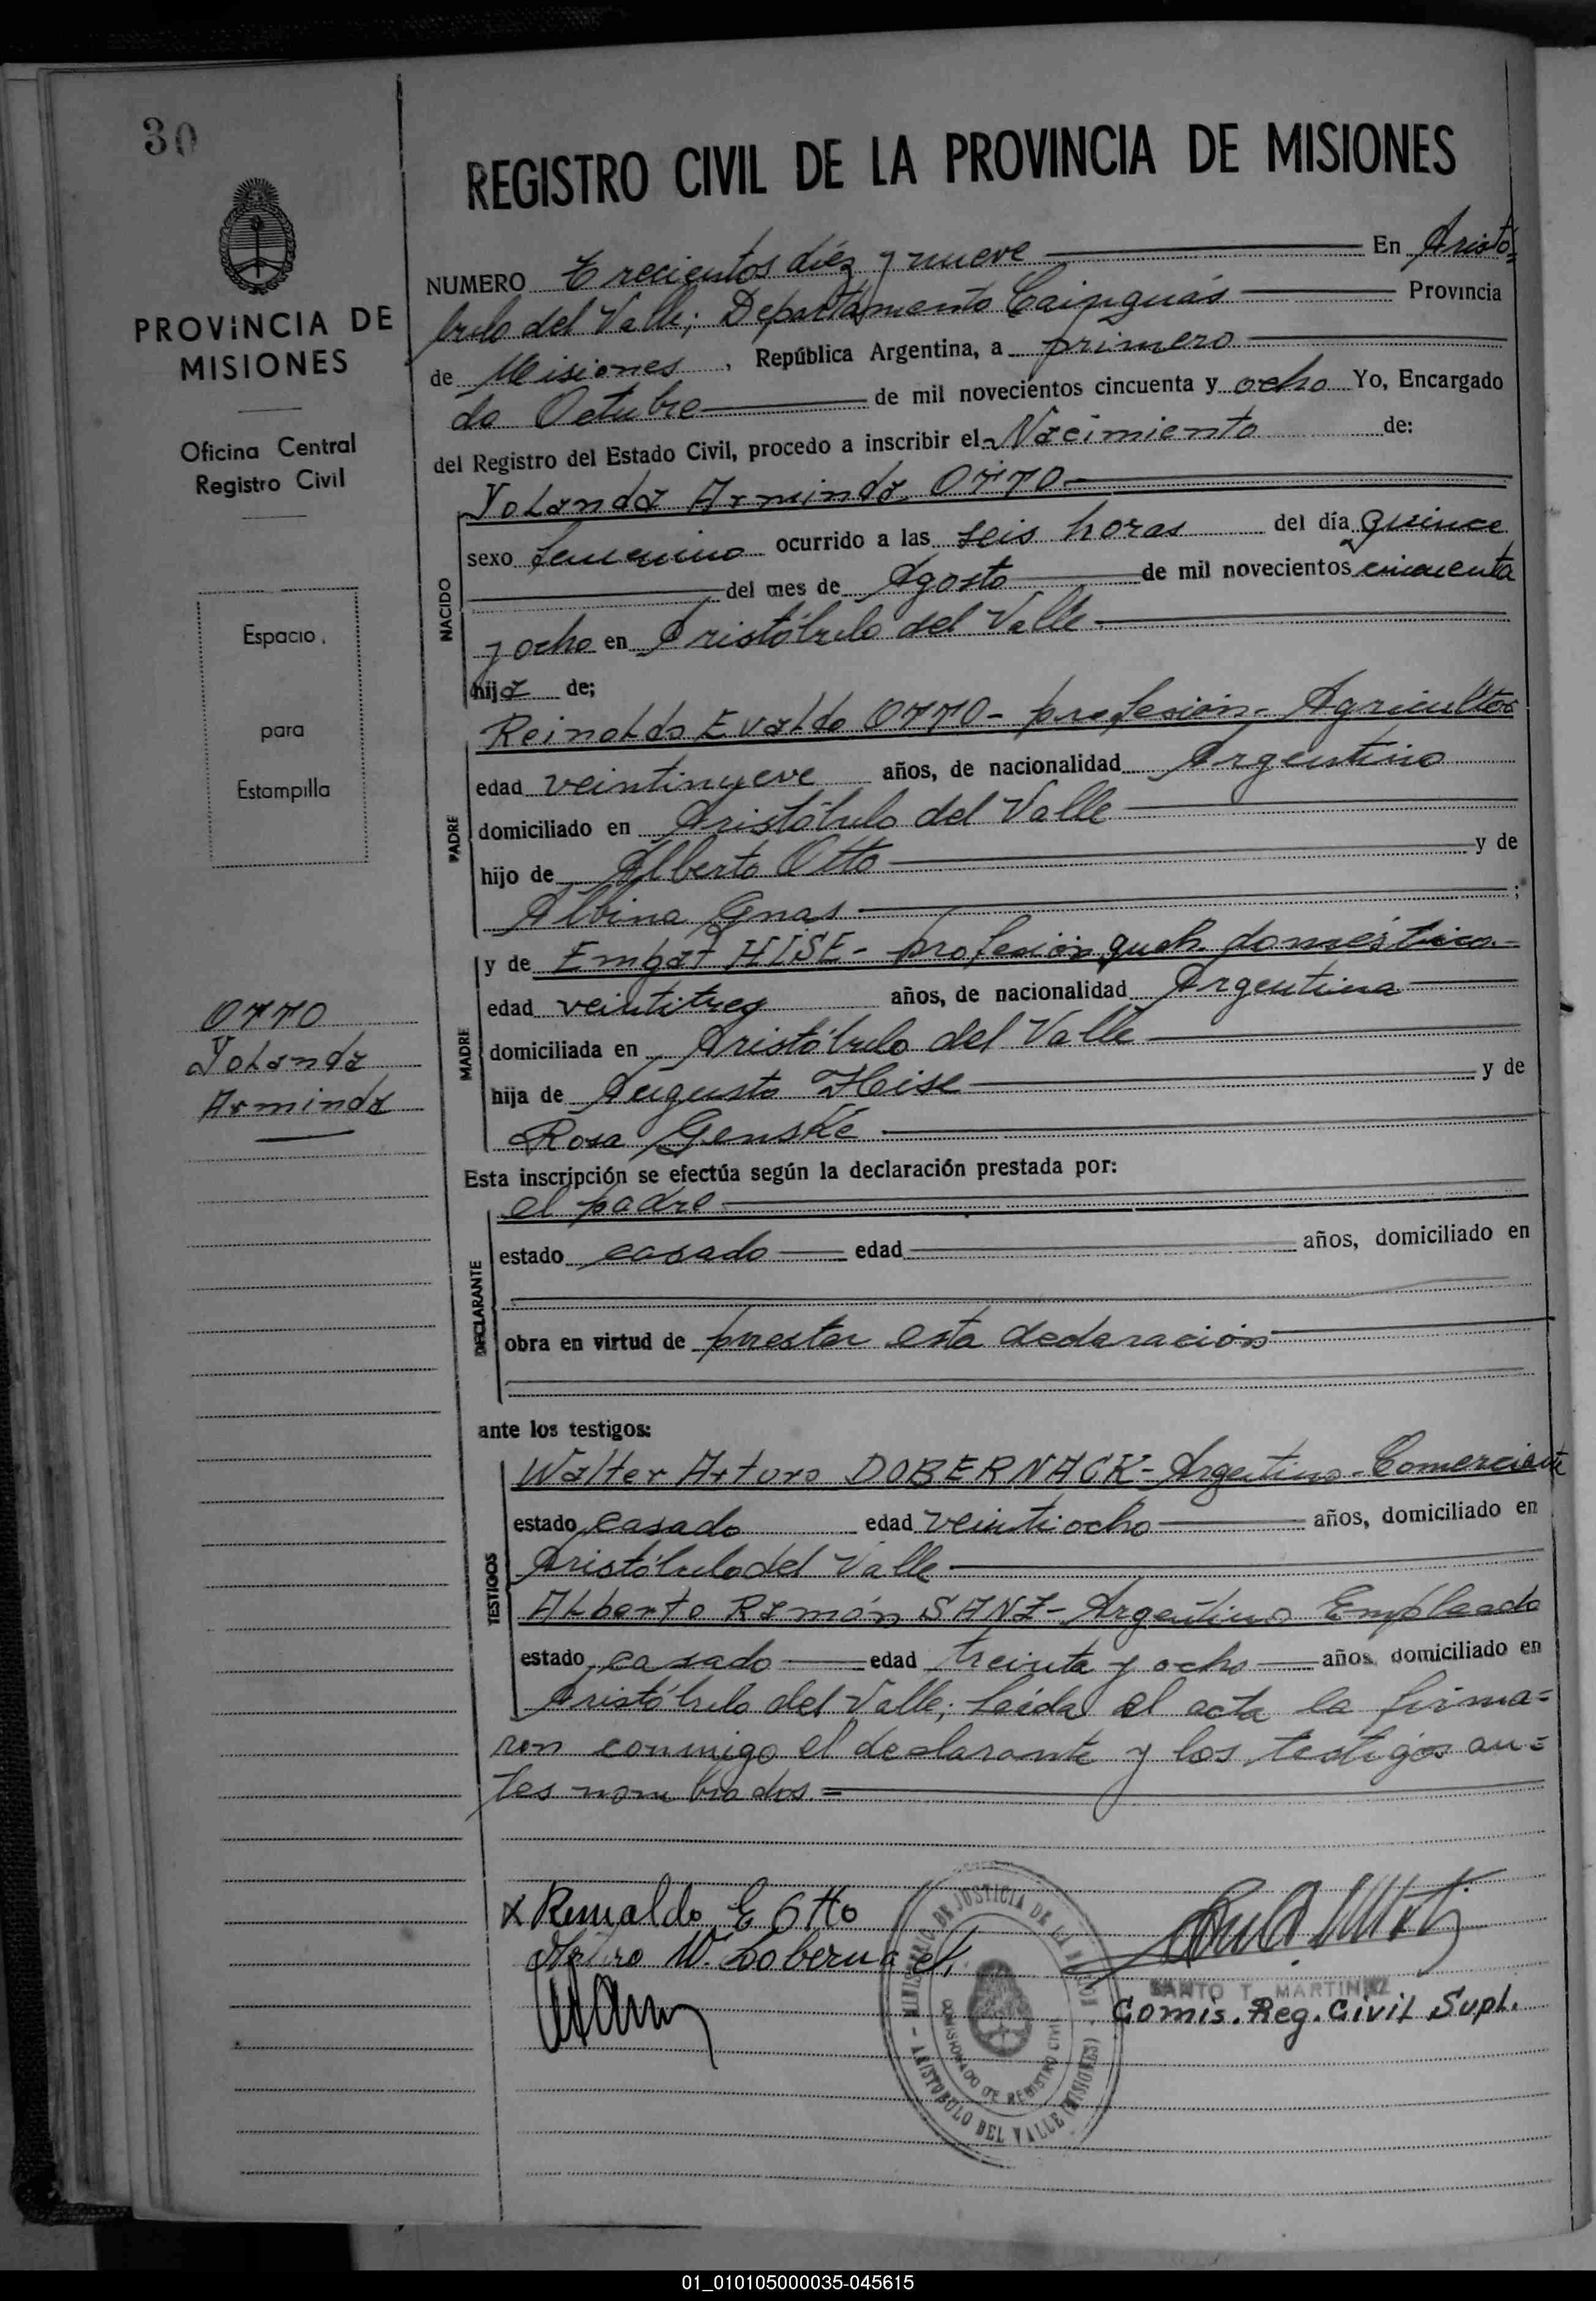 30
PROVINCIA DE
MISIONES
Oficina Central
Registro Civil
Espacio
para
Estampilla
OTTO
Yolanda
Arminda
REGISTRO CIVIL DE LA PROVINCIA DE MISIONES
NUMERO Trecientos diéz y nueve En Aristó=
bulo del Valle; Departamento Cainguás Provincia
de Misiones, República Argentina, a primero
de Octubre de mil novecientos cincuenta y ocho Yo, Encargado
del Registro del Estado Civil, procedo a inscribir el Nacimiento de:
NACIDO
Yolanda Arminda OTTO
sexo femenino ocurrido a las seis horas del día quince
del mes de Agosto de mil novecientos cincuenta
y ocho en Aristóbulo del Valle
hija de;
PADRE
Reinoldo Evaldo OTTO - profesión - Agricultor
edad veintinueve años, de nacionalidad Argentino
domiciliado en Aristóbulo del Valle
hijo de Alberto Otto y de
Albina Gnas ;
MADRE
y de HISE - profesión queh. doméstica.-
edad veintitres años, de nacionalidad Argentina
domiciliada en Aristóbulo del Valle
hija de Augusto Heise y de
Rosa Genske
Esta inscripción se efectúa según la declaración prestada por:
DECLARANTE
el padre
estado casado edad años, domiciliado en
obra en virtud de prestar esta declaración
ante los testigos:
TESTIGOS
Walter Arturo DOBERNACK - Argentino - Comerciante
estado casado edad veintiocho años, domiciliado en
Aristóbulo del Valle
Alberto Ramón SANZ - Argentino Empleado
estado casado edad treinta y ocho años domiciliado en
Aristóbulo del Valle; Leída el acta la firma=
ron conmigo el declarante y los testigos an=
tes nombrados.=
x Reinaldo E Otto
Arturo W. Dobernack
MINISTERIO DE JUSTICIA DE LA NACION
COMISIONADO DE REGISTRO CIVIL
ARISTOBULO DEL VALLE (MISIONES)
SANTO T. MARTINEZ
Comis. Reg. Civil Supl.
01_010105000035-045615